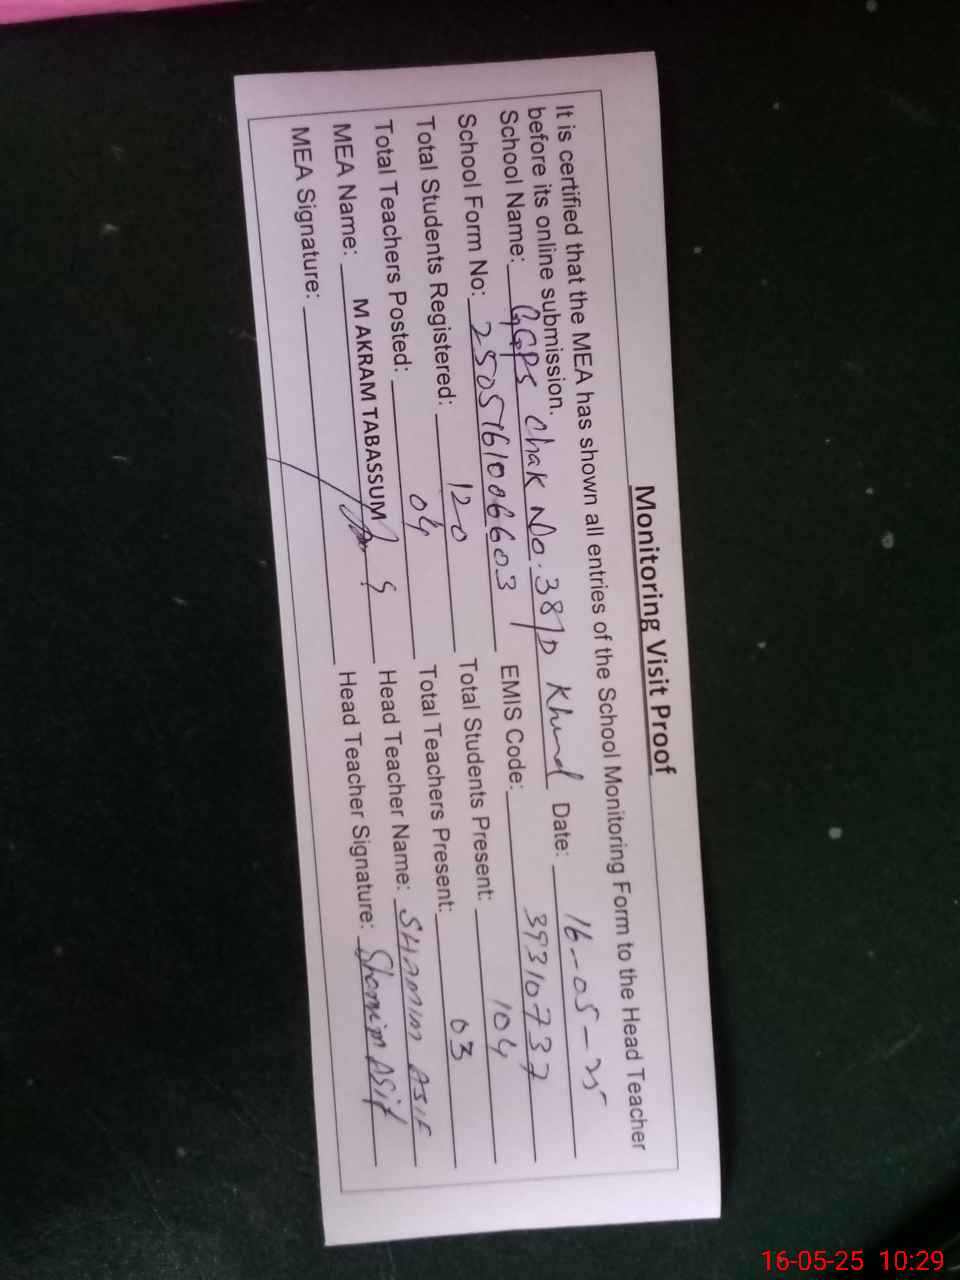 Monitoring Visit Proof
It is certified that the MEA has shown all entries of the School Monitoring Form to the Head Teacher
before its online submission.
School Name: GGPS Chak No. 38/D Khurd Date: 16-05-25
School Form No: 2505161006603 EMIS Code: 39310737
Total Students Registered: 120 Total Students Present: 104
Total Teachers Posted: 04 Total Teachers Present: 03
MEA Name: M AKRAM TABASSUM Head Teacher Name: SHAMIM ASIF
MEA Signature: Head Teacher Signature: Shamim ASif
16-05-25 10:29